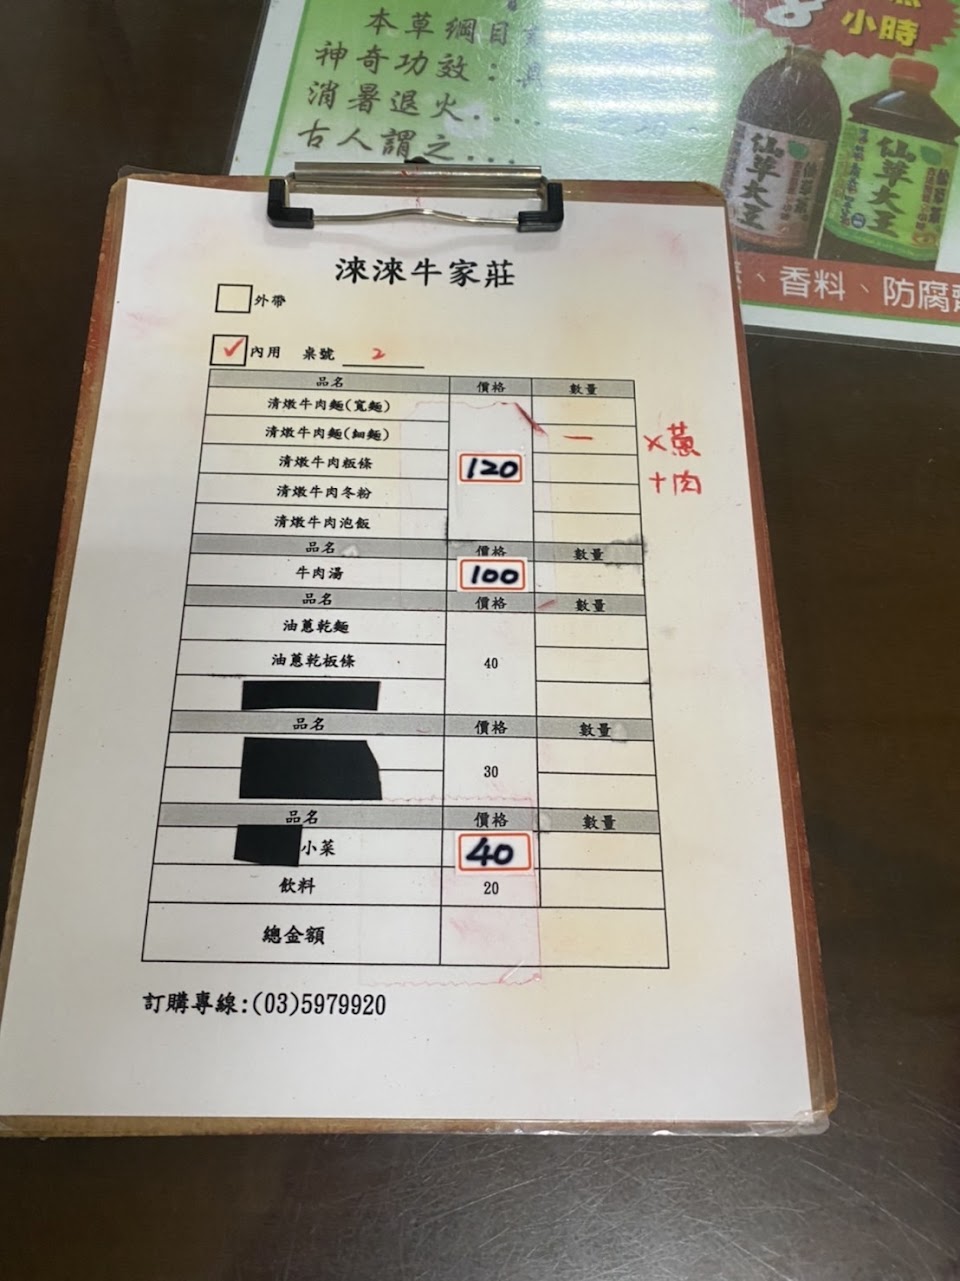 本草綱目
神奇功效：
消暑退火....
古人謂之...
小時
仙草大王
仙草大王
、香料、防腐
淶淶牛家莊
外帶
✓ 內用 桌號 2
品名 價格 數量
清燉牛肉麵(寬麵)
清燉牛肉麵(細麵) 一 x蔥
清燉牛肉粄條 120 +肉
清燉牛肉冬粉
清燉牛肉泡飯
品名 價格 數量
牛肉湯 100
品名 價格 數量
油蔥乾麵
油蔥乾板條 40
品名 價格 數量
30
品名 價格 數量
小菜 40
飲料 20
總金額
訂購專線:(03)5979920